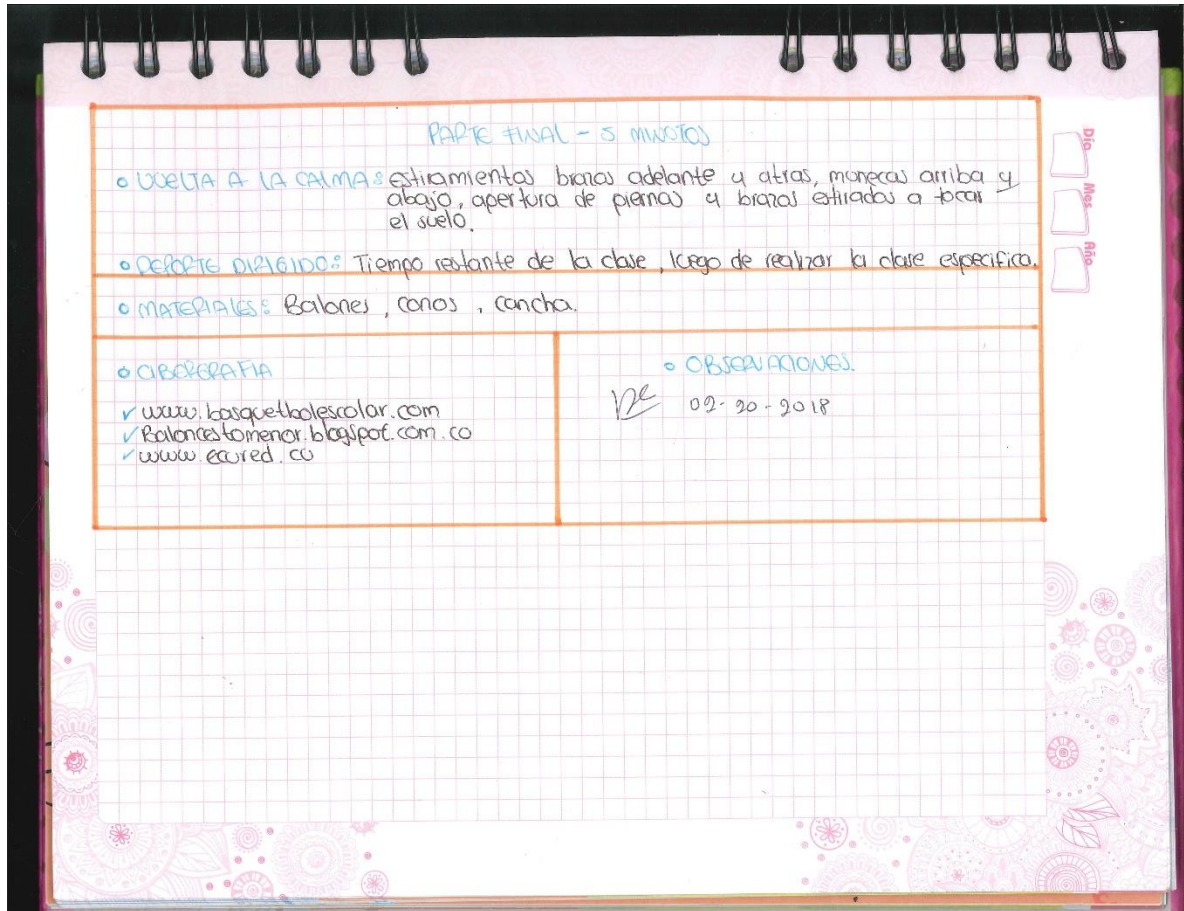 PARTE FINAL - 5 MINUTOS
Día
Mes
Año
• VUELTA A LA CALMA: estiramientos brazos adelante y atras, muñecas arriba y
abajo, apertura de piernas y brazos estirados a tocar
el suelo.
• DEPORTE DIRIGIDO: Tiempo restante de la clase, luego de realizar la clase especifica.
• MATERIALES: Balones, conos, cancha.
• CIBERGRAFIA
✓ www.basquetbolescolar.com
✓ Baloncestomenor.blogspot.com.co
✓ www.ecured.cu
• OBSERVACIONES.
02-20-2018